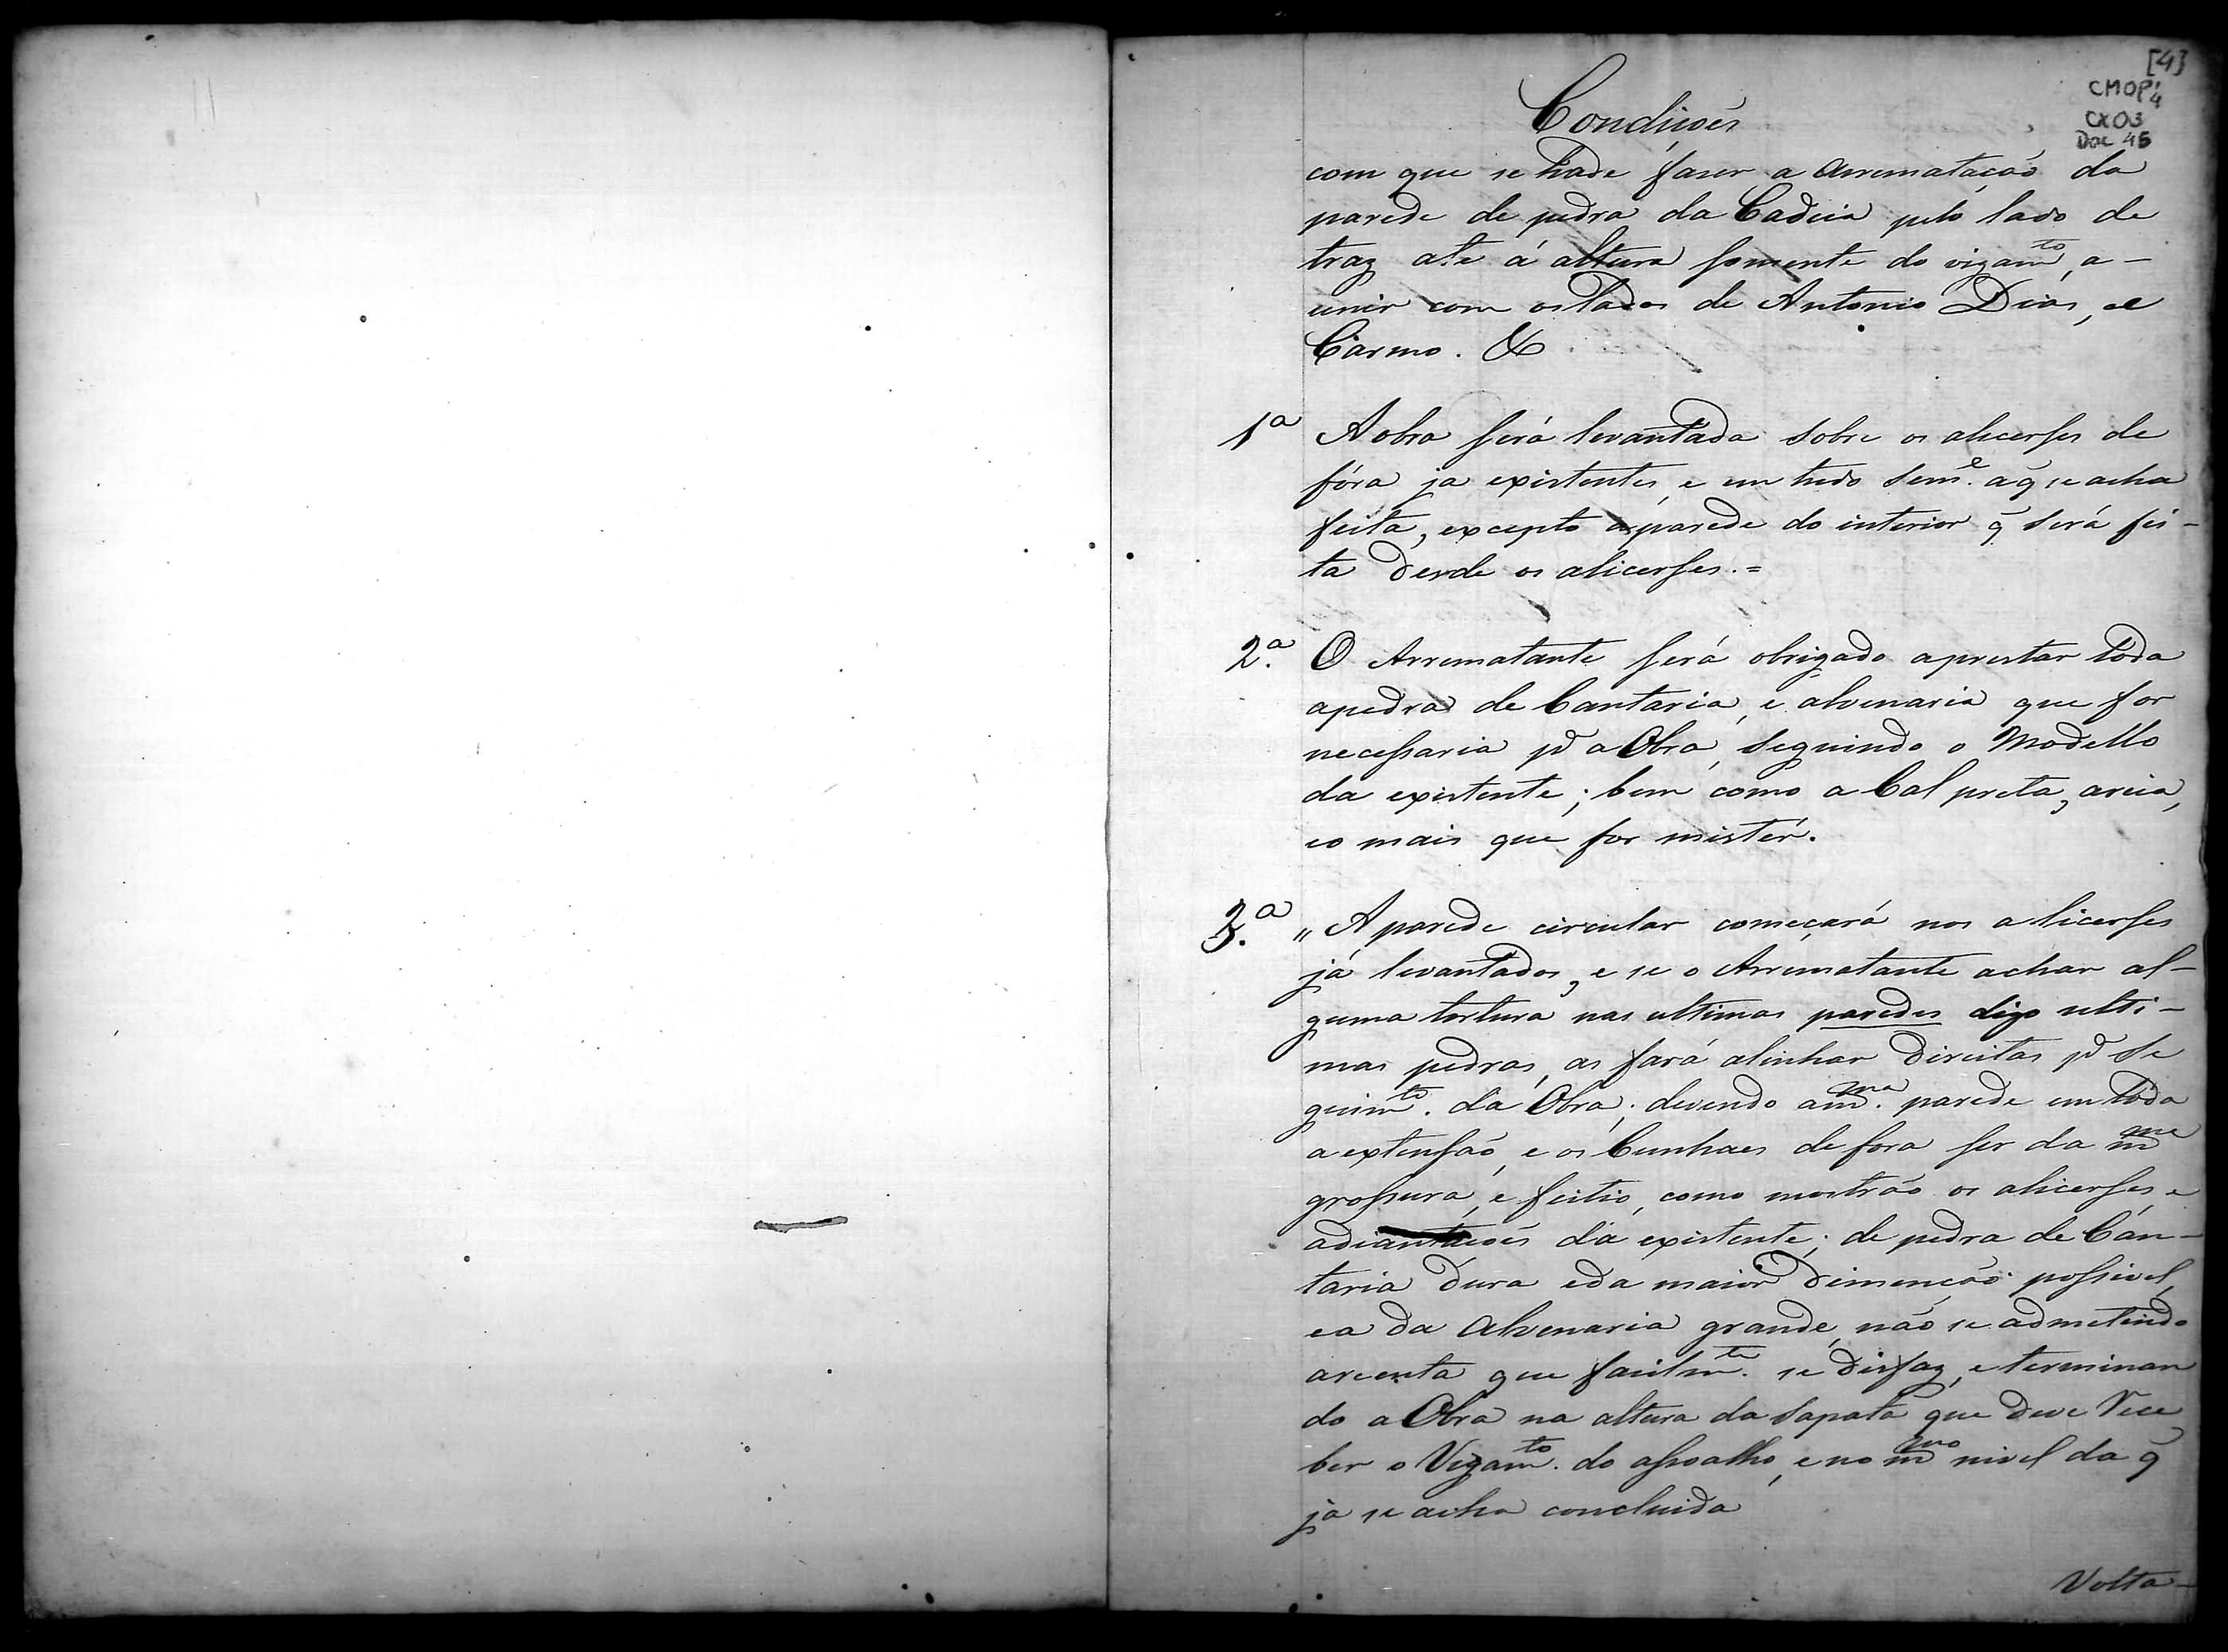 [4]
CMOP 4
CX03
Doc 45
Condiçoẽs
com que se hade fazer a arremataçaõ da
parede de pedra da Cadeia pelo lado de
traz até á altura somente do vigam.to, a-
unir com os lados de Antonio Dias, e
Carmo. &
1.a A obra será levantada sobre os alicerses de
fóra ja existentes, e em tudo sem.e á q̃ se acha
feita, excepto a parede do interior q̃ será fei-
ta desde os alicerses.=
2.a O Arrematante será obrigado aprestar toda
apedra de Cantaria, e alvenaria que for
necessaria p.a a Obra, seguindo o Modello
da existente; bem como a Cal preta, areia,
eo mais que for mistér.
3.a " A parede circular começará nos alicerses
já levantados, e se o Arrematante achar al-
guma tortura nas ultimas paredes digo ulti-
mas pedras, as fará alinhar direitas p.a se
guim.to da Obra; devendo a m.ma parede em toda
a extensaõ, e os Cunhaes de fora ser da m.ma
grossura, e feitio, como mostraõ os alicerses, e
adiantaçoẽs da existente; de pedra de Can-
taria dura eda maior dimençaõ possivel,
ea da alvenaria grande, naõ se admetindo
areenta que facilm.te se disfaz, e terminan
do a Obra na altura da sapata que deve Rece
ber o Vigam.to do assoalho, e no m.mo nivel da q̃
já se acha concluida
Volta-